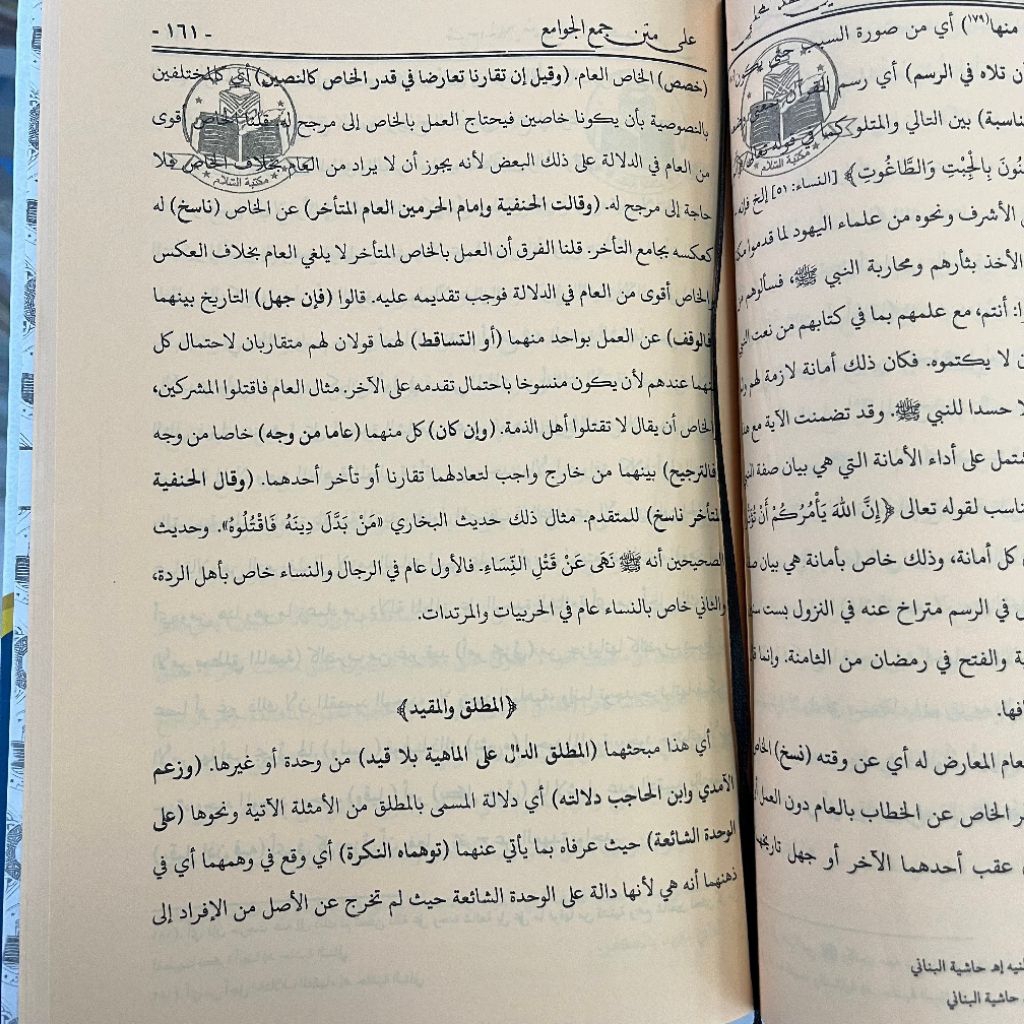 منها(١٧٩) أي من صورة السبب حتى يكون
ن تلاه في الرسم) أي رسم القرآن
ناسبة) بين التالي والمتلو كما في قوله تعالى
نُونَ بِالْجِبْتِ وَالطَّاغُوتِ﴾ [النساء: ٥١] إلخ فإنه
الأشرف ونحوه من علماء اليهود لما قدموا
الأخذ بثأرهم ومحاربة النبي ﷺ، فسألوهم
وا: أنتم، مع علمهم بما في كتابهم من نعت
ن لا يكتموه. فكان ذلك أمانة لازمة لهم
لا حسدا للنبي ﷺ. وقد تضمنت الآية مع
شتمل على أداء الأمانة التي هي بيان صفة
ناسب لقوله تعالى ﴿إِنَّ اللهَ يَأْمُرُكُمْ أَنْ
كل أمانة، وذلك خاص بأمانة هي بيان
في الرسم متراخ عنه في النزول بست
ة والفتح في رمضان من الثامنة. وإنما
فها.
لعام المعارض له أي عن وقته (نسخ)
ر الخاص عن الخطاب بالعام دون العمل
عقب أحدهما الآخر أو جهل تاريخهما
نيه إهـ حاشية البناني
حاشية البناني
على متن جمع الجوامع
- ١٦١ -
(خصص) الخاص العام. (وقيل إن تقارنا تعارضا في قدر الخاص كالنصين) أي كالمختلفين
بالنصوصية بأن يكونا خاصين فيحتاج العمل بالخاص إلى مرجح له. قلنا الخاص أقوى
من العام في الدلالة على ذلك البعض لأنه يجوز أن لا يراد من العام بخلاف الخاص فلا
حاجة إلى مرجح له. (وقالت الحنفية وإمام الحرمين العام المتأخر) عن الخاص (ناسخ) له
كعكسه بجامع التأخر. قلنا الفرق أن العمل بالخاص المتأخر لا يلغي العام بخلاف العكس
والخاص أقوى من العام في الدلالة فوجب تقديمه عليه. قالوا (فإن جهل) التاريخ بينهما
(فالوقف) عن العمل بواحد منهما (أو التساقط) لهما قولان لهم متقاربان لاحتمال كل
منهما عندهم لأن يكون منسوخا باحتمال تقدمه على الآخر. مثال العام فاقتلوا المشركين،
والخاص أن يقال لا تقتلوا أهل الذمة. (وإن كان) كل منهما (عاما من وجه) خاصا من وجه
(فالترجيح) بينهما من خارج واجب لتعادلهما تقارنا أو تأخر أحدهما. (وقال الحنفية
المتأخر ناسخ) للمتقدم. مثال ذلك حديث البخاري «مَنْ بَدَّلَ دِينَهُ فَاقْتُلُوهُ». وحديث
الصحيحين أنه ﷺ نَهَى عَنْ قَتْلِ النِّسَاءِ. فالأول عام في الرجال والنساء خاص بأهل الردة،
والثاني خاص بالنساء عام في الحربيات والمرتدات.
﴿المطلق والمقيد﴾
أي هذا مبحثهما (المطلق الدال على الماهية بلا قيد) من وحدة أو غيرها. (وزعم
الآمدي وابن الحاجب دلالته) أي دلالة المسمى بالمطلق من الأمثلة الآتية ونحوها (على
الوحدة الشائعة) حيث عرفاه بما يأتي عنهما (توهماه النكرة) أي وقع في وهمهما أي في
ذهنهما أنه هي لأنها دالة على الوحدة الشائعة حيث لم تخرج عن الأصل من الإفراد إلى
مكتبة السلام
مكتبة السلام